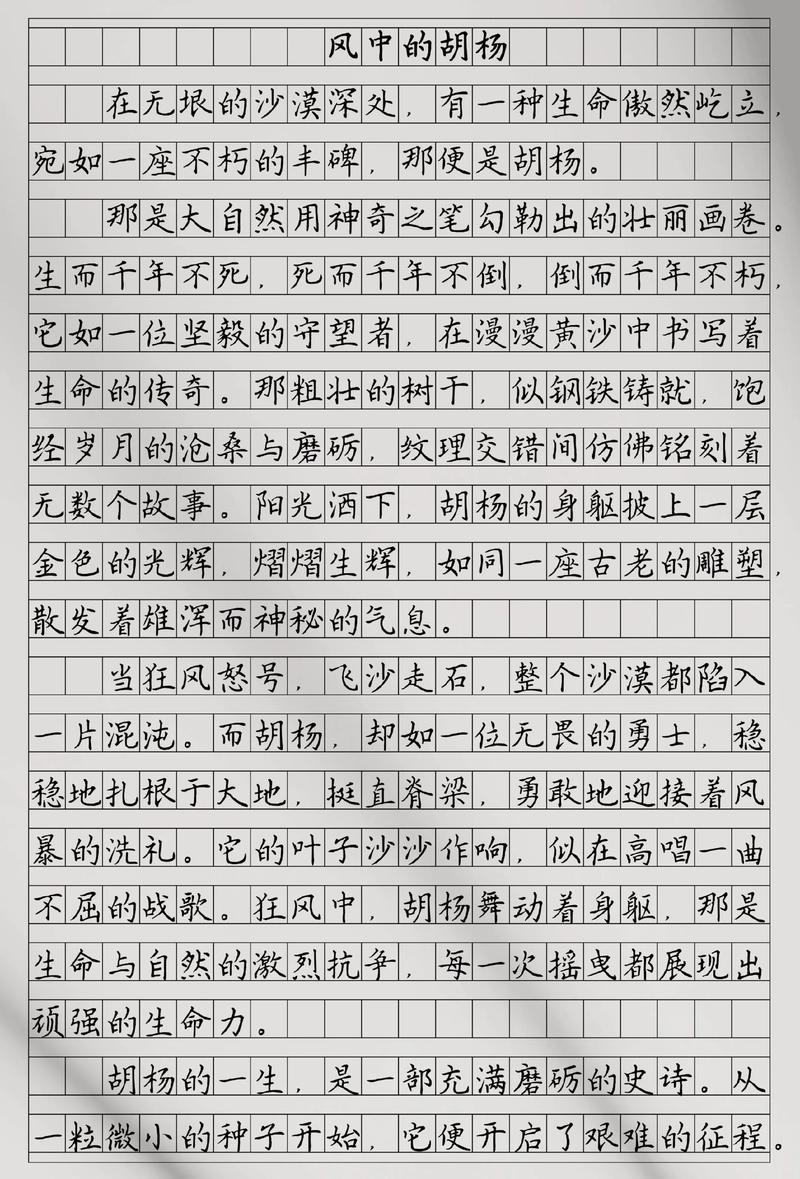 风中的胡杨
在无垠的沙漠深处，有一种生命傲然屹立，
宛如一座不朽的丰碑，那便是胡杨。
那是大自然用神奇之笔勾勒出的壮丽画卷。
生而千年不死，死而千年不倒，倒而千年不朽，
它如一位坚毅的守望者，在漫漫黄沙中书写着
生命的传奇。那粗壮的树干，似钢铁铸就，饱
经岁月的沧桑与磨砺，纹理交错间仿佛铭刻着
无数个故事。阳光洒下，胡杨的身躯披上一层
金色的光辉，熠熠生辉，如同一座古老的雕塑，
散发着雄浑而神秘的气息。
当狂风怒号，飞沙走石，整个沙漠都陷入
一片混沌。而胡杨，却如一位无畏的勇士，稳
稳地扎根于大地，挺直脊梁，勇敢地迎接着风
暴的洗礼。它的叶子沙沙作响，似在高唱一曲
不屈的战歌。狂风中，胡杨舞动着身躯，那是
生命与自然的激烈抗争，每一次摇曳都展现出
顽强的生命力。
胡杨的一生，是一部充满磨砺的史诗。从
一粒微小的种子开始，它便开启了艰难的征程。